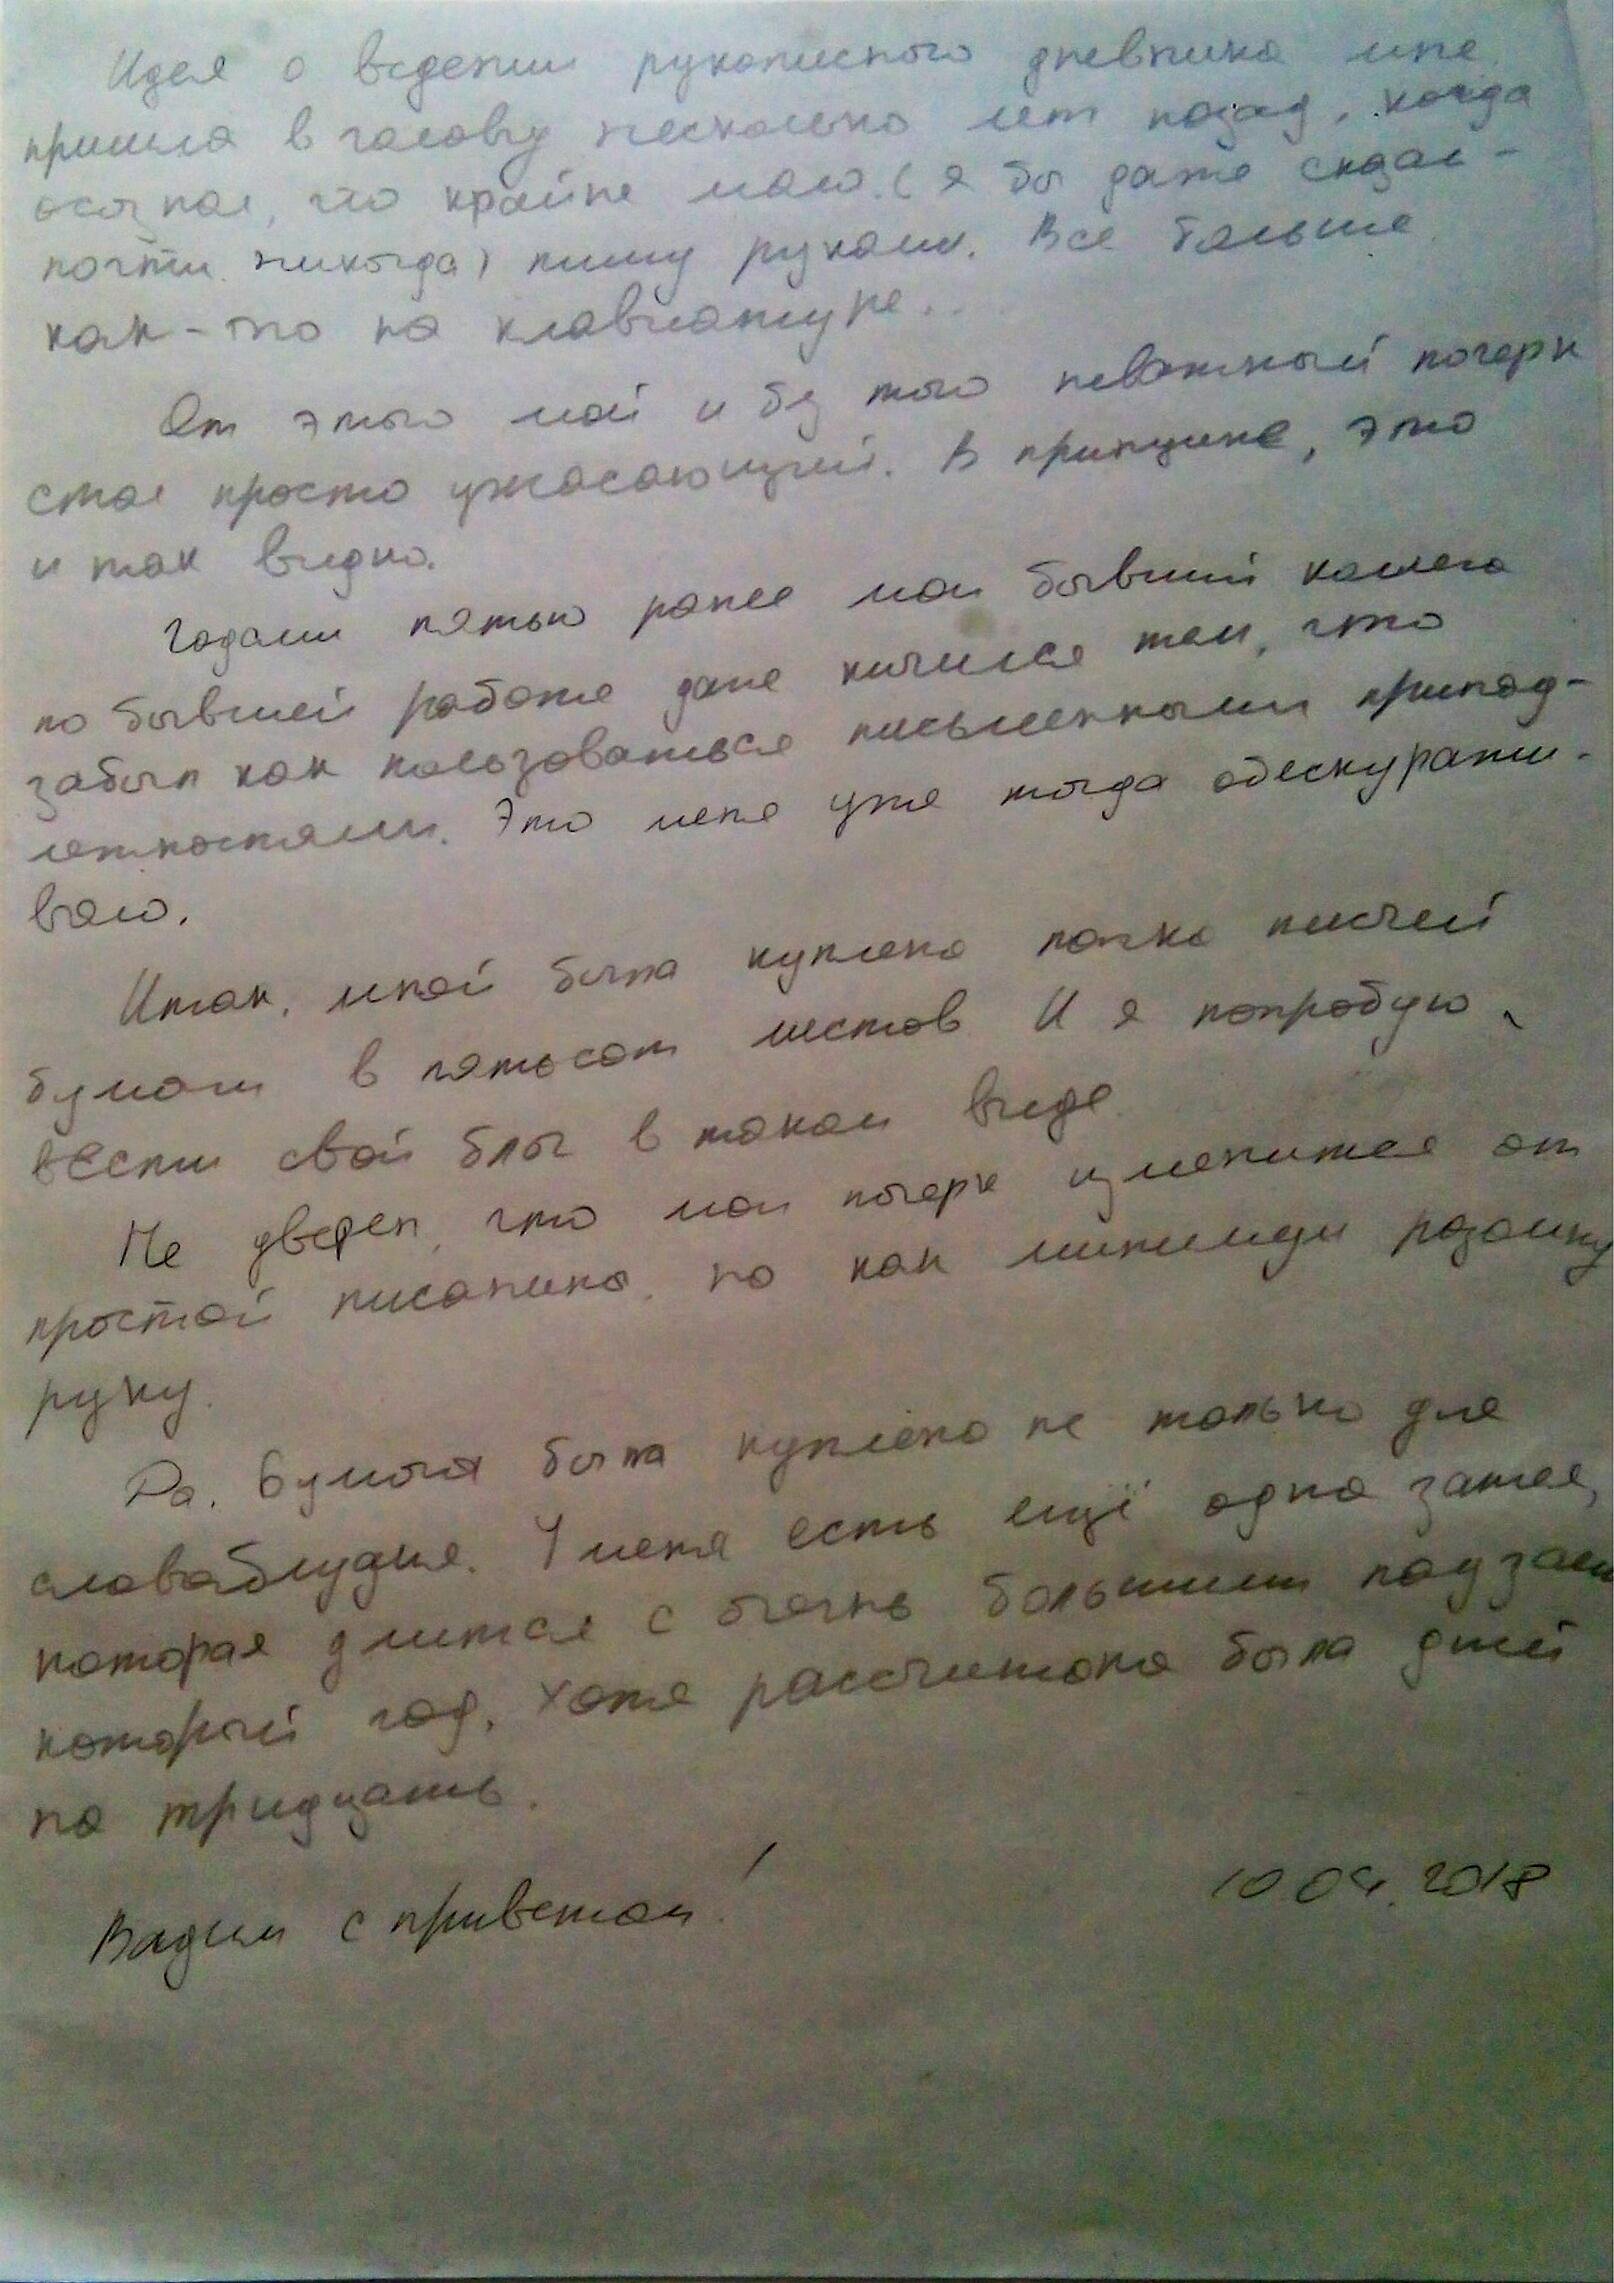 Идея о ведении рукописного дневника мне
пришла в голову несколько лет назад, когда
осознал, что крайне мало (я бы даже сказал -
почти никогда) пишу руками. Всё больше
как-то на клавиатуре...
От этого мой и без того неважный почерк
стал просто ужасающий. В принципе, это
и так видно.
Годами пятью ранее мой бывший коллега
по бывшей работе даже кичился тем, что
забыл как пользоваться письменными принад-
лежностями. Это меня уже тогда обескуражи-
вало.
Итак, мной была куплена пачка писчей
бумаги в пятьсот листов. И я попробую
вести свой блог в таком виде.
Не уверен, что мой почерк изменится от
простой писанины, но как минимум разомну
ручку.
Да. Бумага была куплена не только для
словоблудия. У меня есть ещё одна затея,
которая длится с очень большими паузами
который год. Хотя рассчитана была дней
на тридцать.
Вадим с приветом!
10.04.2018